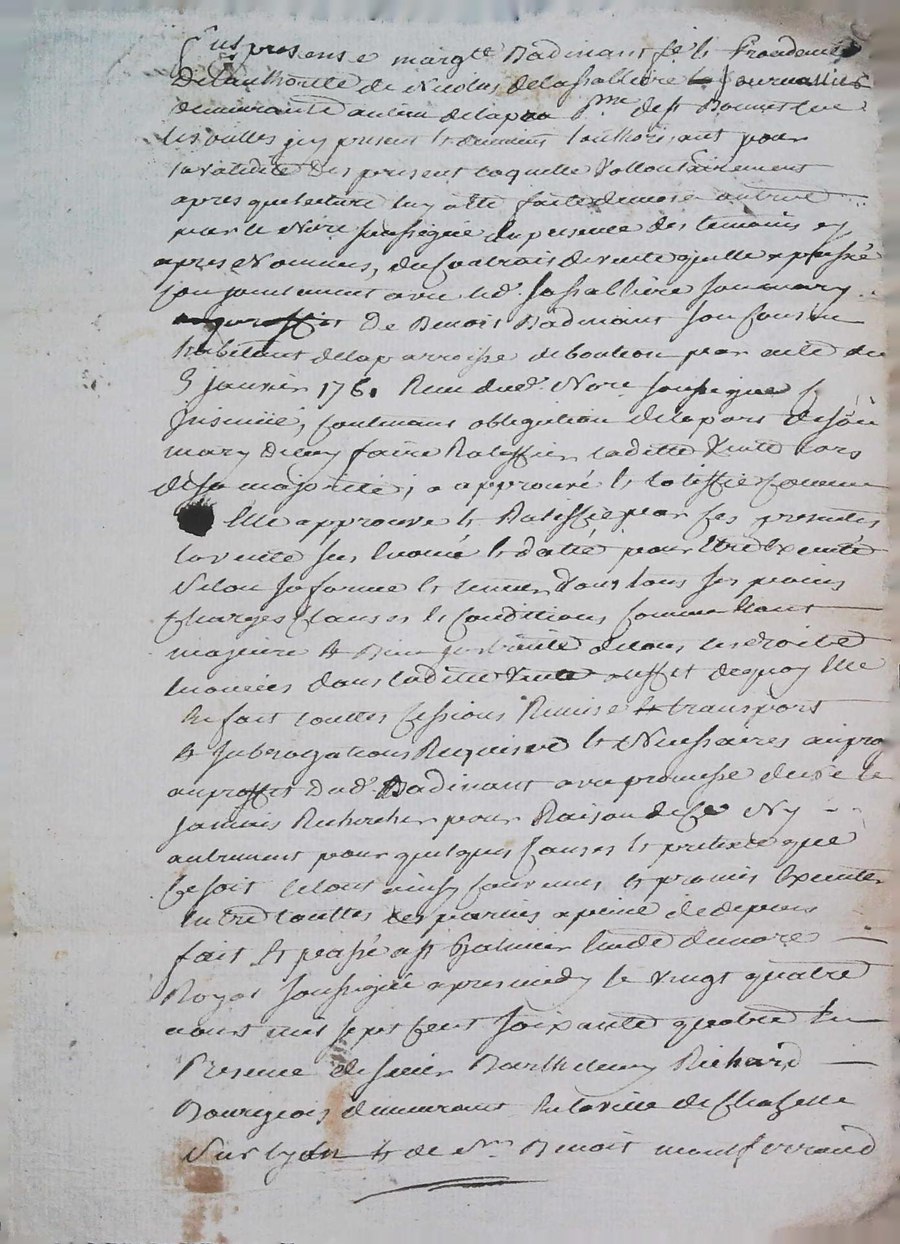 fut presente margte Badinant fe et procedente
De lauthorité de Nicolas delasalliere journallier
demeurante au lieu de la par st Bonnet
les oulles icy present et duement lauthorisant pour
la validité des present laquelle vollontairement
apres que lecture luy a été faitte de mot a autre
par le Nore soussigné en presence des temoins cy
apres Nommés, du Contrat de vente quelle a passé
Conjointement avec led. Lasalliere son mary
au proffit De Benoit Badinant son Cousin
habitant de la parroisse de bouteon par acte du
5 janvier 1761 Recu dud. Nore soussigné et
Insinué, Contenant obligation de la part de son
mary de luy faire Ratiffier laditte vente lors
de sa majorité, a approuvé et ratiffié comme
Elle approuve et Ratiffie par ces presentes
la vente sus Enoncé et datté pour Etre Executé
Selon sa forme et teneur dans tous ses points
Charges Clauses et Conditions comme Etant
majeure et Bien instruitte de tous les droits
Enoncés dans laditte vente a leffet de quoy Elle
En fait touttes Cessions Remise et transport
et subrogations Requises et Necessaires au pro
au proffit Dud. Badinant avec promesse de ne le
jamais Rechercher pour Raison de ce Ny
autrement pour quelques Causes et pretexte que
Ce soit le tout ainsy Convenus et promis Executer
Entre touttes les parties a peine de depens
fait et passé a st Galmier Etude du nore
Royal soussigné apres midy le vingt quatre
aoust mil sept Cent soixante quatre En
Presence de sieur Barthelemy Richard
Bourgeois demeurant En la ville de Chazelle
Sur Lyon et de Sr Benoit montferrand